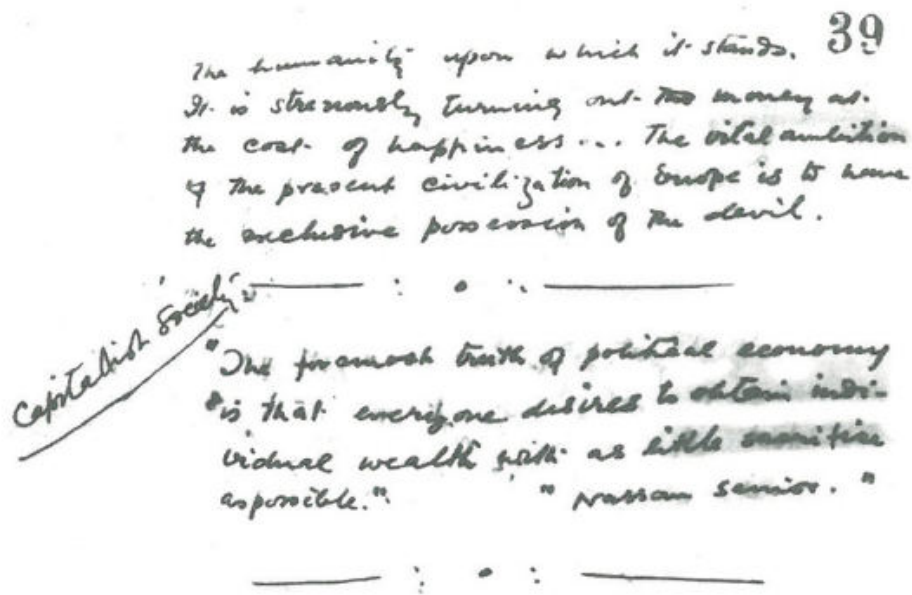 39
the humanity upon which it stands.
It is strenuously turning out the money at
the cost of happiness... The vital ambition
of the present civilization of Europe is to have
the exclusive possession of the devil.
Capitalist Society:
"The foremost truth of political economy
is that everyone desires to obtain indi-
vidual wealth with as little sacrifice
as possible." "Nassau Senior."